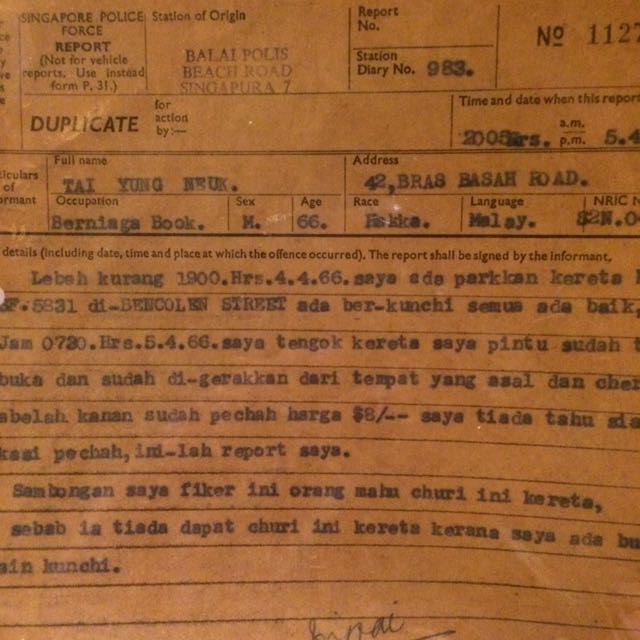 SINGAPORE POLICE FORCE
REPORT
(Not for vehicle
reports. Use instead
form P. 31.)
Station of Origin
BALAI POLIS
BEACH ROAD
SINGAPURA 7
Report
No.
Station
Diary No. 983.
No 1127
DUPLICATE
for
action
by:—
Time and date when this report
2005Hrs. a.m.
p.m. 5.4
Full name
TAI YUNG NEUK.
Address
42, BRAS BASAH ROAD.
Occupation
Berniaga Book.
Sex
M.
Age
66.
Race
Hakka.
Language
Malay.
NRIC N
details (including date, time and place at which the offence occurred). The report shall be signed by the informant.
Lebeh kurang 1900.Hrs.4.4.66.saya ada parkkan kereta
5831 di-BENCOLEN STREET ada ber-kunchi semua ada baik,
Jam 0720.Hrs.5.4.66.saya tengok kereta saya pintu sudah
buka dan sudah di-gerakkan dari tempat yang asal dan
abelah kanan sudah pechah harga $8/-- saya tiada tahu sia
kasi pechah,ini-lah report saya.
Sambongan saya fiker ini orang mahu churi ini kereta,
sebab ia tiada dapat churi ini kereta kerana saya ada bu
ain kunchi.